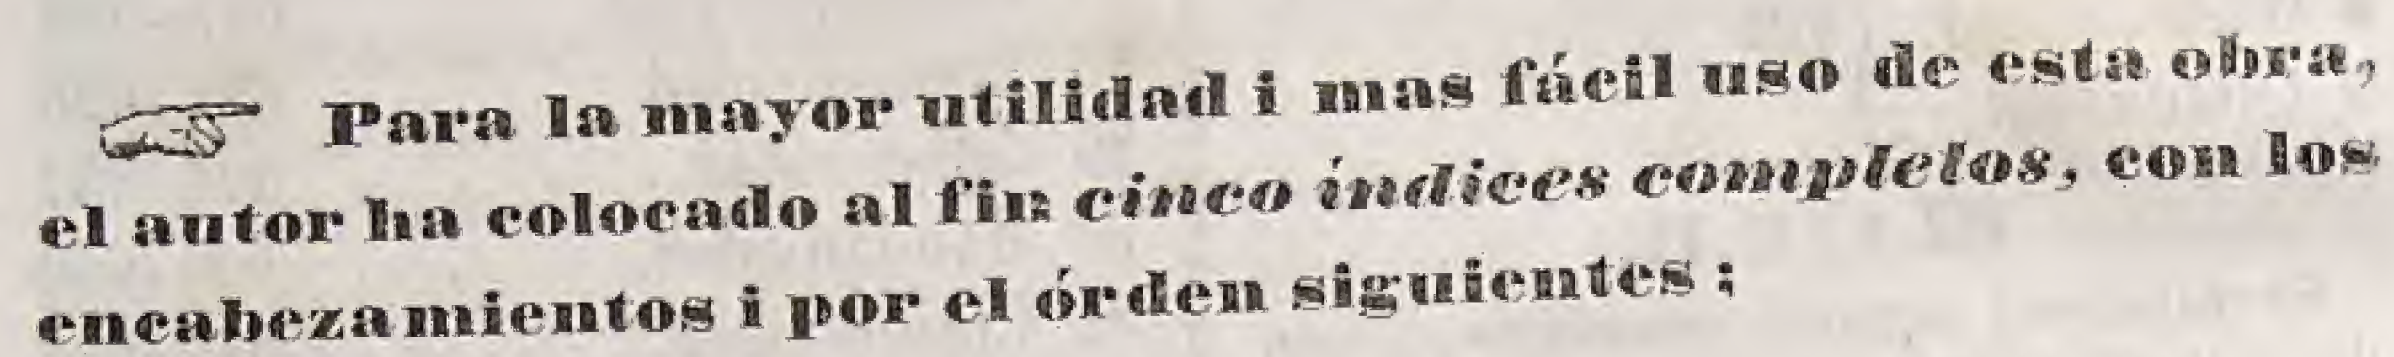 ☞ Para la mayor utilidad i mas fácil uso de esta obra,
el autor ha colocado al fin cinco índices completos, con los
encabezamientos i por el órden siguientes :